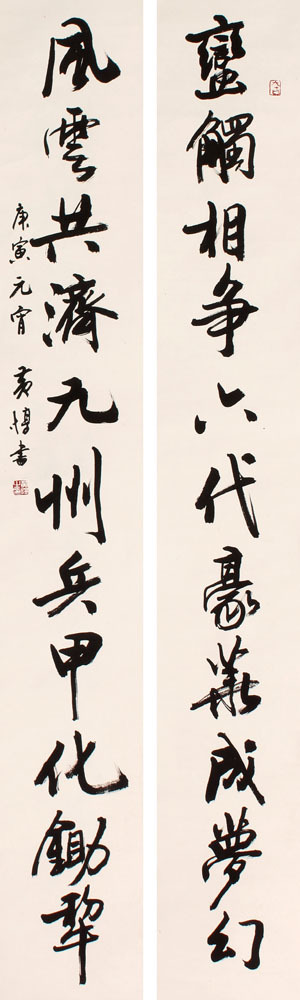 蠻觸相争六代豪華成夢幻
風雲共濟九州兵甲化鋤犂
庚寅元宵 黄惇書